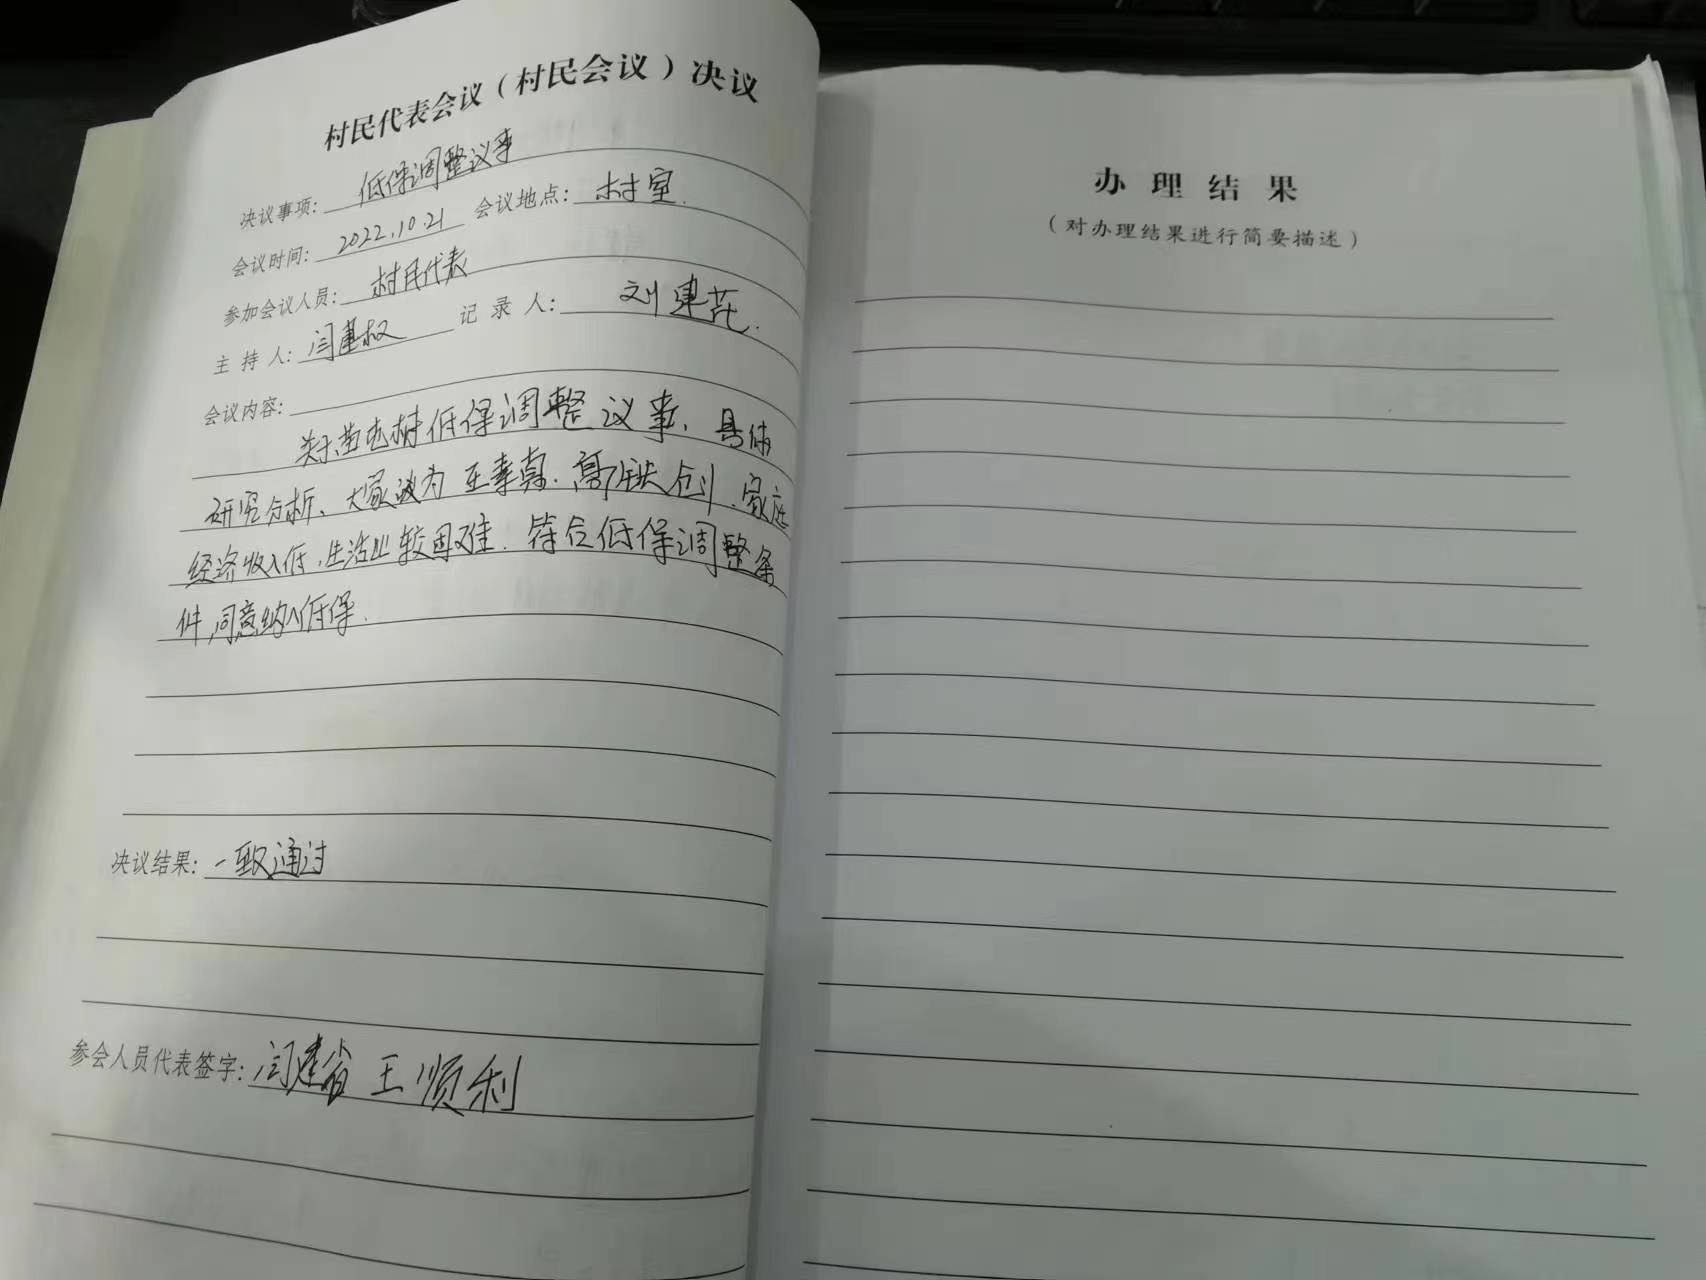 村民代表会议（村民会议）决议
决议事项: 低保调整议事
会议时间: 2022.10.21 会议地点: 村室.
参加会议人员: 村民代表
主持人: 闫建权 记录人: 刘建花.
会议内容:
关于营屯村低保调整议事、具体
研究分析、大家认为王素霞.高铁创.家庭
经济收入低.生活比较困难.符合低保调整条
件,同意纳入低保.
决议结果: 一致通过
参会人员代表签字: 闫建省 王顺利
办理结果
（对办理结果进行简要描述）